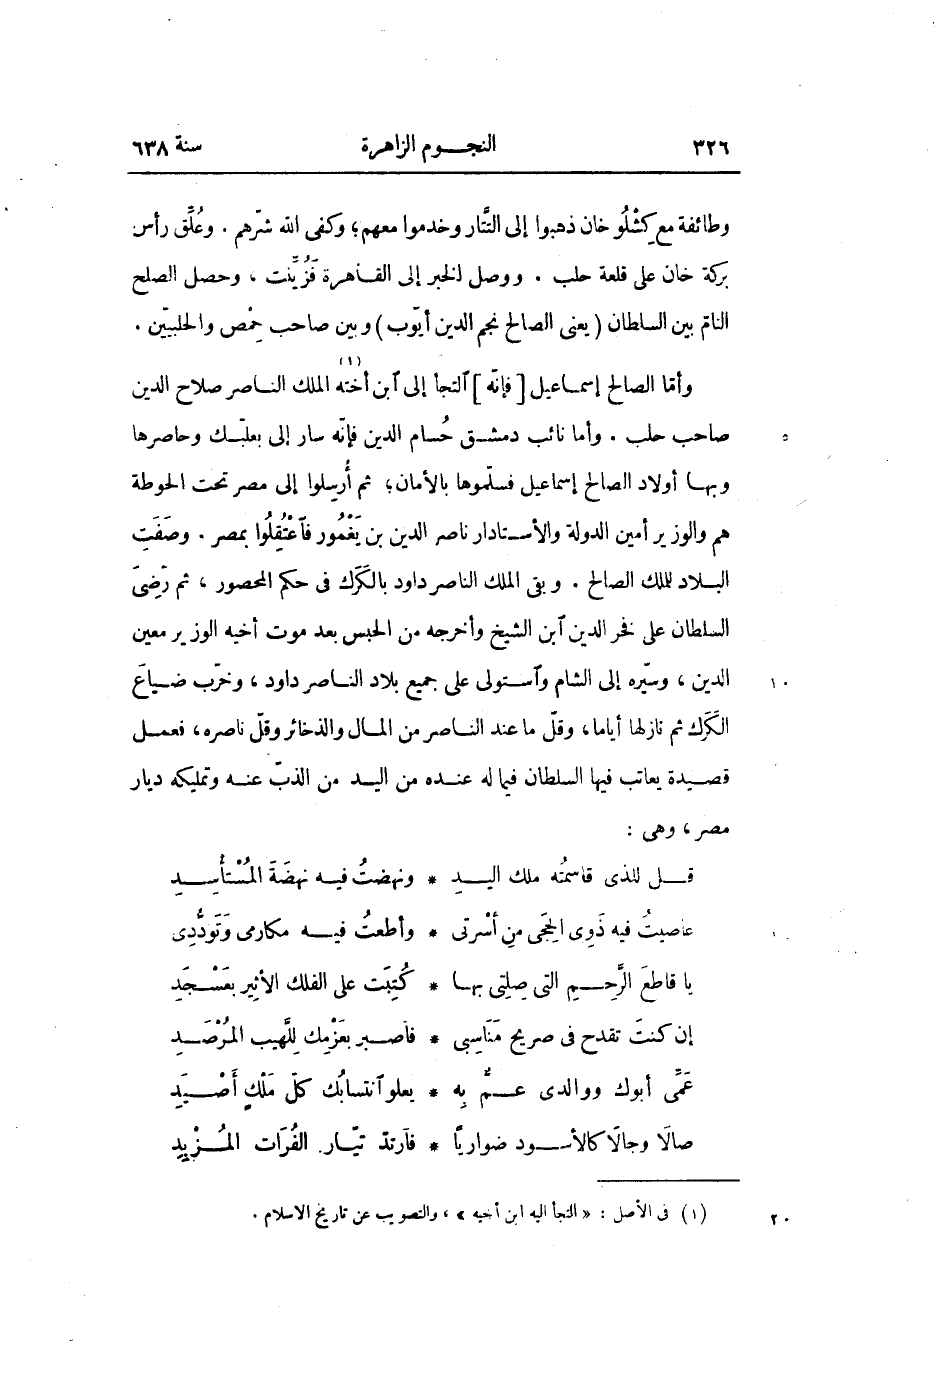 ٣٢٦ النجوم الزاهرة سنة ٦٣٨
وطائفة مع كِشْلُو خان ذهبوا إلى التَّتار وخدموا معهم؛ وكفى الله شرّهم . وعُلِّق رأس
بركة خان على قلعة حلب . ووصل الخبر إلى القاهرة فزُيِّنت ، وحصل الصلح
التام بين السلطان (يعنى الصالح نجم الدين أيّوب) وبين صاحب حِمْص والحلبيّين .
وأمّا الصالح إسماعيل [فإنّه] ٱلتجأ إلى ٱبن أخته (١) الملك الناصر صلاح الدين
صاحب حلب . وأما نائب دمشق حُسام الدين فإنّه سار إلى بعلبّك وحاصرها ٥
وبها أولاد الصالح إسماعيل فسلّموها بالأمان؛ ثم أُرسلوا إلى مصر تحت الحوطة
هم والوزير أمين الدولة والأستادار ناصر الدين بن يَغْمُور فٱعْتُقِلُوا بمصر . وصَفَتِ
البلاد للملك الصالح . وبقى الملك الناصر داود بالكَرَك فى حكم المحصور ، ثم رَضِىَ
السلطان على فخر الدين ٱبن الشيخ وأخرجه من الحبس بعد موت أخيه الوزير معين
الدين ، وسيّره إلى الشام وٱستولى على جميع بلاد الناصر داود ، وخرّب ضياعَ ١٠
الكَرَك ثم نازلها أياما ، وقلّ ما عند الناصر من المال والذخائر وقلّ ناصره ، فعمل
قصيدة يعاتب فيها السلطان فيما له عنده من اليد من الذبّ عنه وتمليكه ديار
مصر ، وهى :
قل للذى قاسمتُه ملك اليد * ونهضتُ فيه نهضَةَ المُسْتأْسِد
عاصيتُ فيه ذَوِى الحِجَى مِن أُسْرتى * وأطعتُ فيه مكارمى وتَوَدُّدِى
يا قاطعَ الرَّحِم التى صِلتِى بها * كُتِبَت على الفلك الأثير بعَسْجَدِ
إن كنتَ تقدح فى صريح مَنَاسِبى * فاصبر بعَزْمِك للَّهيب المُرْصَد
عَمِّى أبوك ووالدى عمٌّ بِه * يعلو ٱنتسابُك كلّ مَلْكٍ أَصْيَدِ
صالَا وجالَا كالأسود ضواريًا * فٱرتدّ تيّار الفُرَات المُزْبِد
(١) فى الأصل : « التجأ اليه ابن أخيه » ، والتصويب عن تاريخ الاسلام . ٢٠